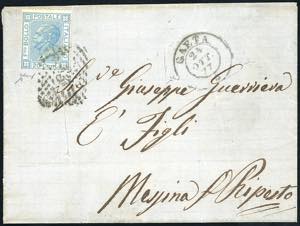 POSTALE
GAETA
24
OTT
77
de Giuseppe Guerriera
E' Figli
Messina p Riposto